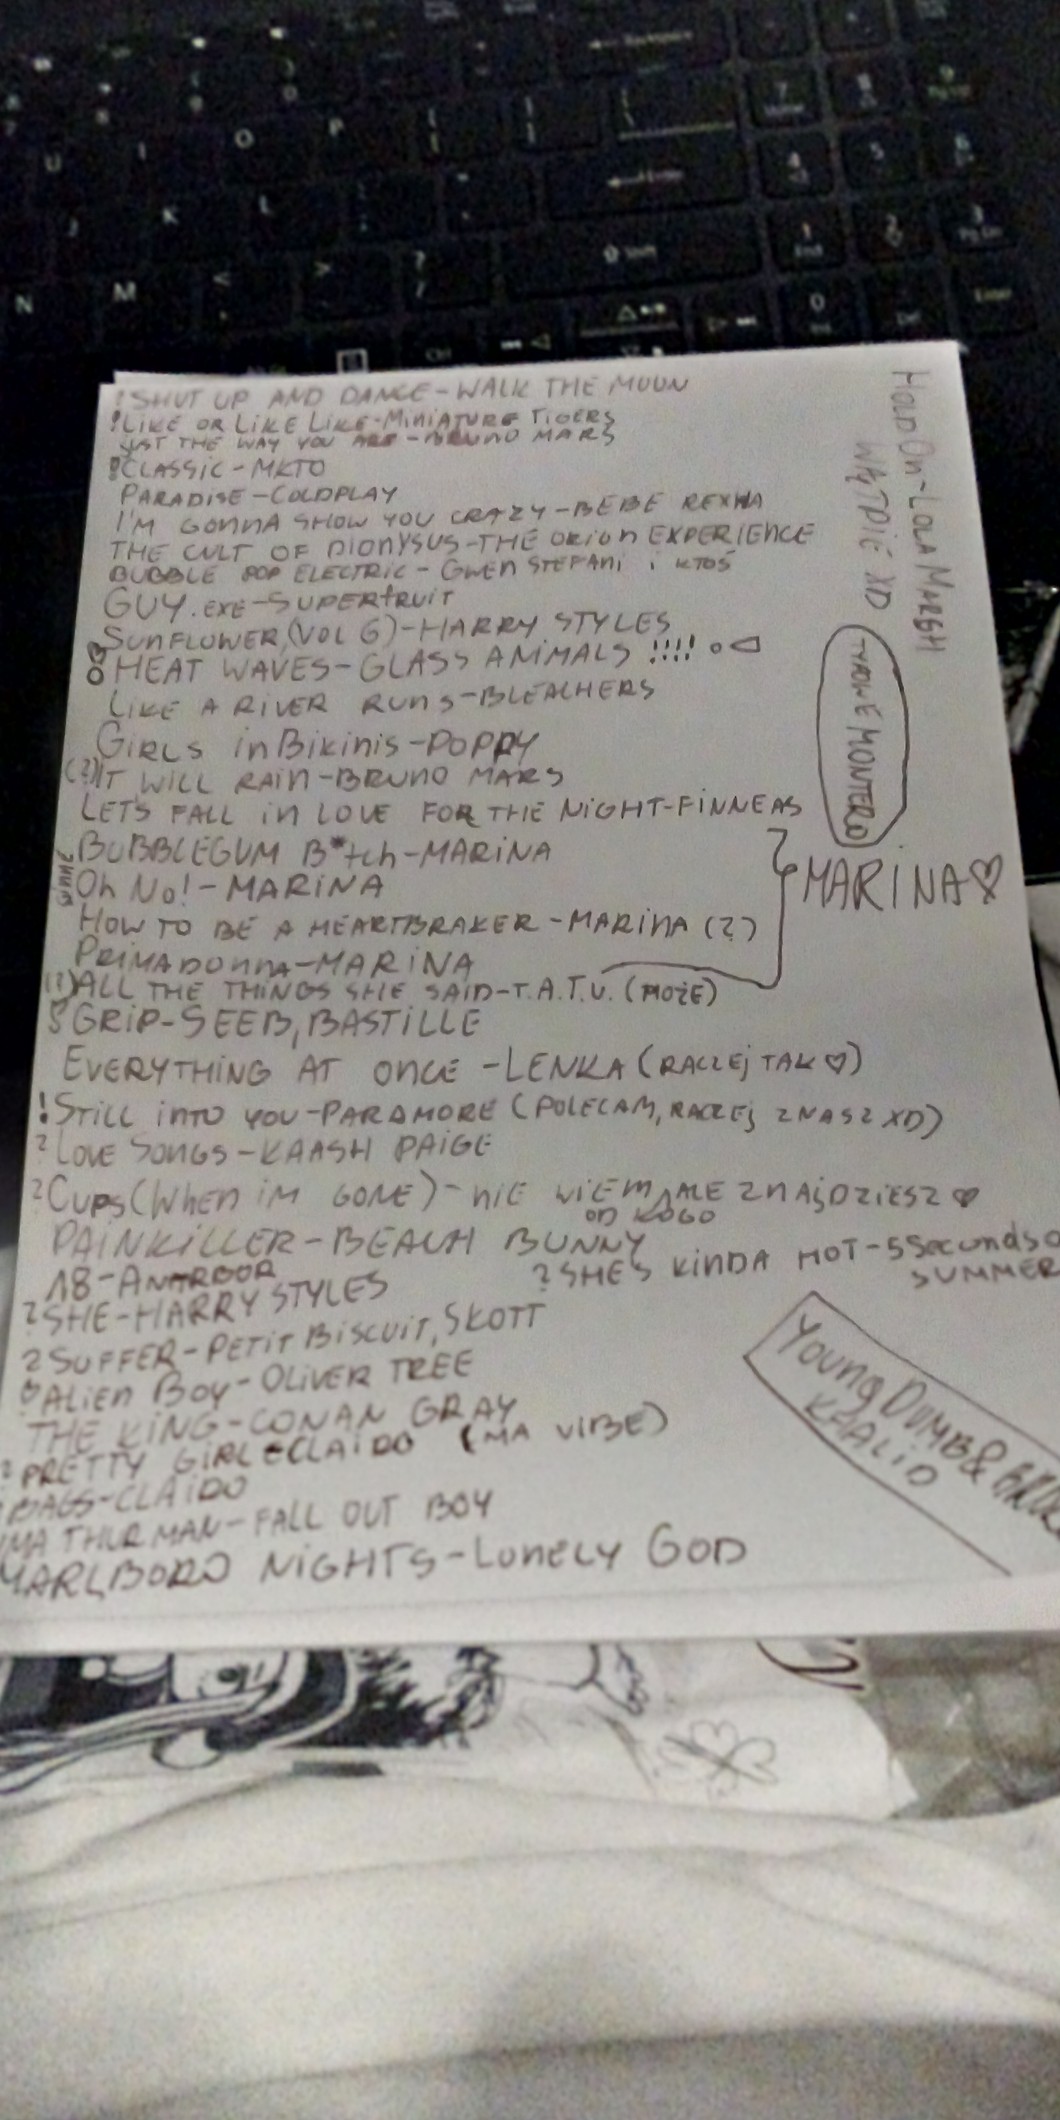 ! SHUT UP AND DANCE-WALK THE MOON
! LIKE OR LIKE LIKE-MINIATURE TIGERS
JUST THE WAY YOU ARE-BRUNO MARS
! CLASSIC-MKTO
PARADISE-COLDPLAY
I'M GONNA SHOW YOU CRAZY-BEBE REXHA
THE CULT OF DIONYSUS-THE ORION EXPERIENCE
BUBBLE POP ELECTRIC-GWEN STEFANI i KTOŚ
GUY.EXE-SUPERFRUIT
SUNFLOWER,(VOL 6)-HARRY STYLES
HEAT WAVES-GLASS ANIMALS !!!!
LIKE A RIVER RUNS-BLEACHERS
GIRLS in BIKINIS-POPPY
(?) IT WILL RAIN-BRUNO MARS
LET'S FALL IN LOVE FOR THE NIGHT-FINNEAS
BUBBLEGUM B*tch-MARINA
Oh No!-MARINA
HOW TO BE A HEARTBRAKER-MARINA (?)
PRIMADONNA-MARINA
ALL THE THINGS SHE SAID-T.A.T.U. (MOŻE)
GRIP-SEEB, BASTILLE
EVERYTHING AT ONCE-LENKA (RACZEJ TAK ♡)
! STILL INTO YOU-PARAMORE (POLECAM, RACZEJ ZNASZ XD)
? LOVE SONGS-KAASH PAIGE
? CUPS (WHEN IM GONE)-NIE WIEM ALE ZNAJDZIESZ ♥
OD KOGO
PAINKILLER-BEACH BUNNY
18-ANARBOR
? SHE'S KINDA HOT-5 Seconds O
SUMMER
? SHE-HARRY STYLES
? SUFFER-PETIT BISCUIT, SKOTT
ALIEN BOY-OLIVER TREE
THE KING-CONAN GRAY
? PRETTY GIRL-CLAIDO (MA VIBE)
BAGS-CLAIDO
UMA THURMAN-FALL OUT BOY
MARLBORO NIGHTS-LONELY GOD
HOLD On-LOLA MARSH
WĄTPIĘ XD
MONTERO
MARINA ♡
Young DUMB &
KHALID